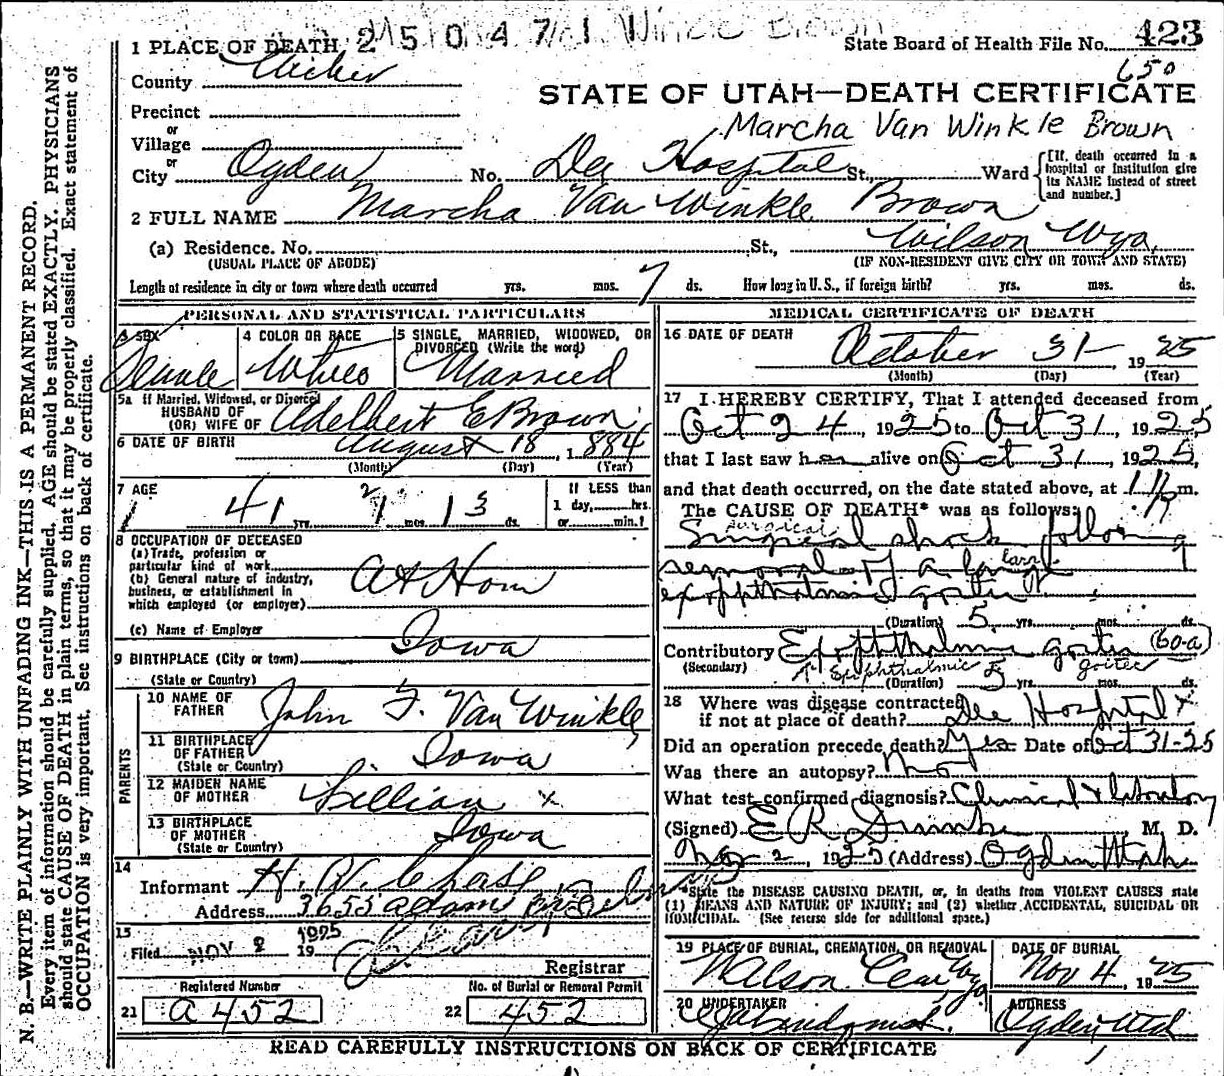 2 5 0 4 7 1 1
Winkle Brown
1 PLACE OF DEATH
State Board of Health File No. 423
650
County Weber
STATE OF UTAH—DEATH CERTIFICATE
Precinct
Marcha Van Winkle Brown
or
Village
or
City Ogden No. Dee Hospital St., Ward
[If, death occurred in a hospital or Institution give its NAME instead of street and number.]
2 FULL NAME Marcha Van Winkle Brown
(a) Residence. No. St., Wilson Wyo.
(USUAL PLACE OF ABODE) (IF NON-RESIDENT GIVE CITY OR TOWN AND STATE)
Length of residence in city or town where death occurred yrs. mos. 7 ds. How long in U. S., if foreign birth? yrs. mos. ds.
PERSONAL AND STATISTICAL PARTICULARS
3 SEX
Female
4 COLOR OR RACE
White
5 SINGLE, MARRIED, WIDOWED, OR DIVORCED (Write the word)
Married
5a If Married, Widowed, or Divorced
HUSBAND OF
(OR) WIFE OF Adelbert E Brown
6 DATE OF BIRTH August 18, 1884
(Month) (Day) (Year)
7 AGE
41 yrs. 2 mos. 13 ds.
If LESS than
1 day, hrs.
or min.?
8 OCCUPATION OF DECEASED
(a) Trade, profession or
particular kind of work
(b) General nature of industry,
business, or establishment in
which employed (or employer)
At Home
(c) Name of Employer
9 BIRTHPLACE (City or town) Iowa
(State or Country)
PARENTS
10 NAME OF
FATHER John F. Van Winkle
11 BIRTHPLACE
OF FATHER Iowa
(State or Country)
12 MAIDEN NAME
OF MOTHER Lillian x
13 BIRTHPLACE
OF MOTHER Iowa
(State or Country)
14
Informant H. V. Chase
Address 3655 Adams
15
Filed NOV 2 1925 19
Registrar
Registered Number
21 a 452
No. of Burial or Removal Permit
22 452
MEDICAL CERTIFICATE OF DEATH
16 DATE OF DEATH
October 31 1925
(Month) (Day) (Year)
17 I HEREBY CERTIFY, That I attended deceased from
Oct 24, 1925 to Oct 31, 1925,
that I last saw her alive on Oct 31, 1925,
and that death occurred, on the date stated above, at 1 P m.
The CAUSE OF DEATH* was as follows:
surgical
Surgical shock following
removal of a large
exophthalmic goiter
(Duration) 5 yrs. mos. ds.
Contributory Exophthalmic goiter (60-a)
(Secondary) Exophthalmic goiter
(Duration) 5 yrs. mos. ds.
18 Where was disease contracted
if not at place of death? Dee Hospital x
Did an operation precede death? Yes Date of Oct 31-25
Was there an autopsy? no
What test confirmed diagnosis? Clinical & laboratory
(Signed) E R M. D.
Nov 2, 1925 (Address) Ogden Utah
*State the DISEASE CAUSING DEATH, or, in deaths from VIOLENT CAUSES state
(1) MEANS AND NATURE OF INJURY; and (2) whether ACCIDENTAL, SUICIDAL OR
HOMICIDAL. (See reverse side for additional space.)
19 PLACE OF BURIAL, CREMATION, OR REMOVAL
Wilson Wyo
DATE OF BURIAL
Nov 4, 1925
20 UNDERTAKER
Lindquist
ADDRESS
Ogden Utah
READ CAREFULLY INSTRUCTIONS ON BACK OF CERTIFICATE
N. B.—WRITE PLAINLY WITH UNFADING INK—THIS IS A PERMANENT RECORD.
Every item of information should be carefully supplied. AGE should be stated EXACTLY. PHYSICIANS
should state CAUSE OF DEATH in plain terms, so that it may be properly classified. Exact statement of
OCCUPATION is very important. See instructions on back of certificate.